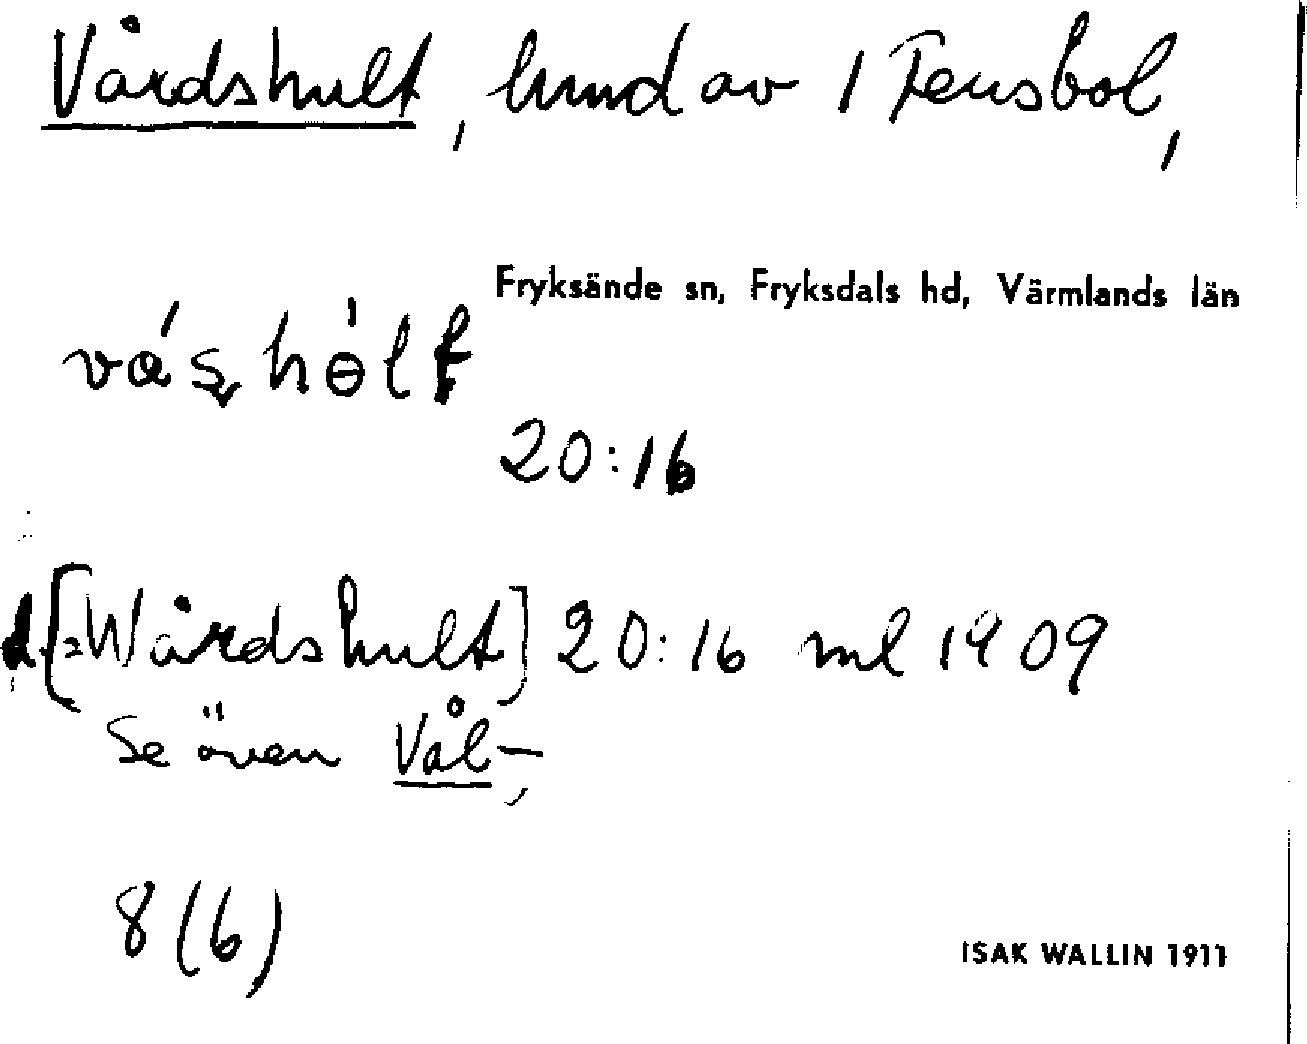 Vårdshult, hmd av 1 Fensbol,
Fryksände sn, Fryksdals hd, Värmlands län
vás̬hɵ́lt
20:16
[=Wårdshult] 20:16 ml 1909
Se även Vål-,
8 (6)
ISAK WALLIN 1911